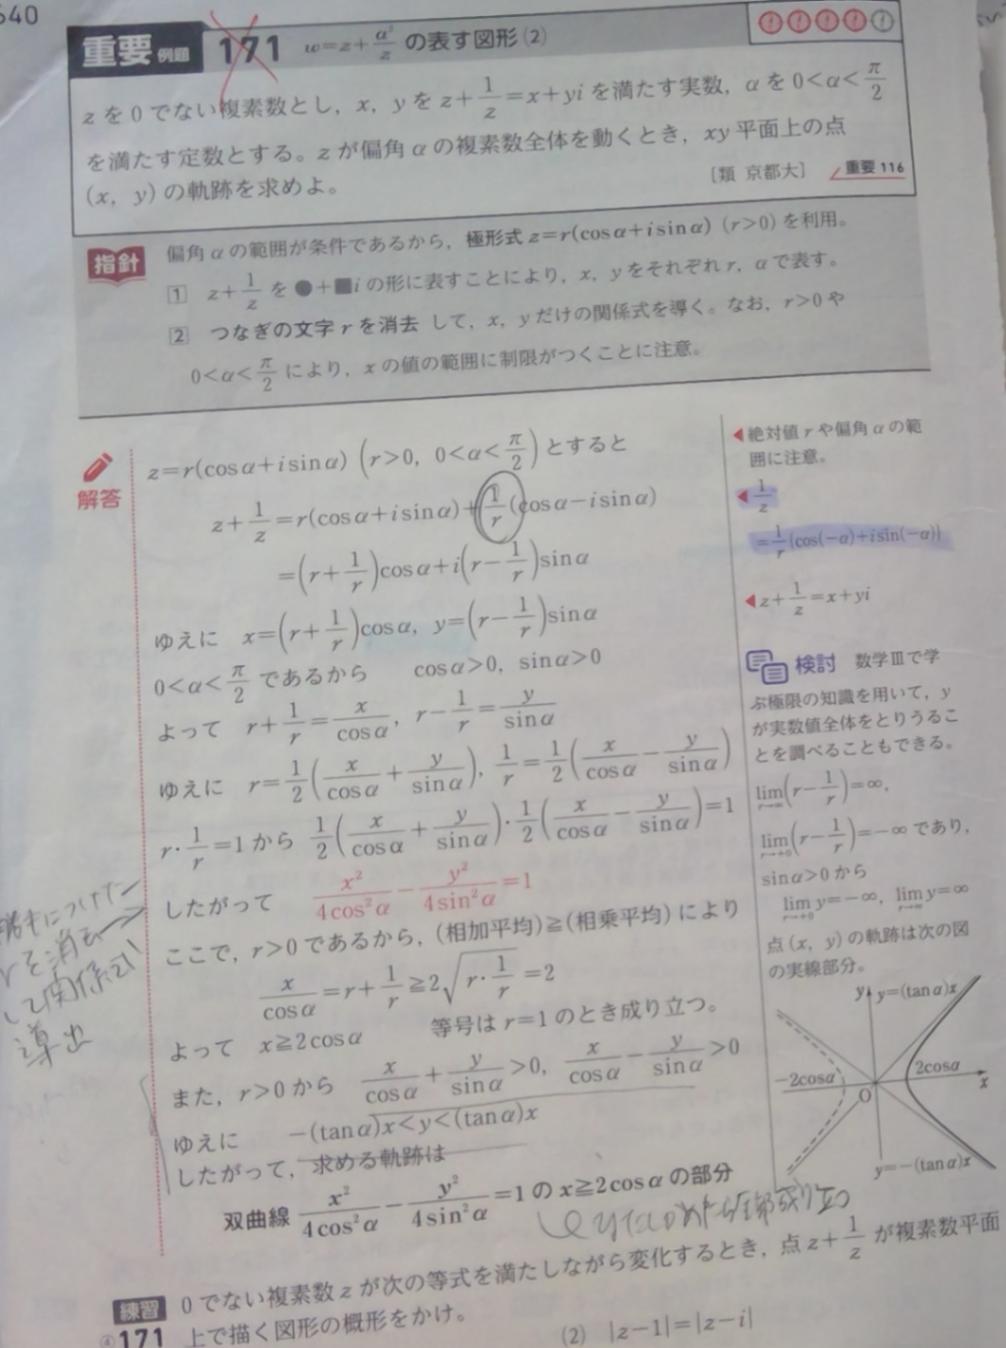 640
重要 例題 171 w=z+a²/z の表す図形(2)
zを0でない複素数とし，x，yを z+1/z=x+yi を満たす実数，αを 0<α<π/2
を満たす定数とする。zが偏角αの複素数全体を動くとき，xy平面上の点
(x, y)の軌跡を求めよ。
[類 京都大] 重要116
指針 偏角αの範囲が条件であるから，極形式 z=r(cosα+isinα) (r>0) を利用。
1 z+1/z を ●+■i の形に表すことにより，x，yをそれぞれr，αで表す。
2 つなぎの文字rを消去 して，x，yだけの関係式を導く。なお，r>0や
0<α<π/2 により，xの値の範囲に制限がつくことに注意。
解答
z=r(cosα+isinα) (r>0, 0<α<π/2) とすると
z+1/z=r(cosα+isinα)+1/r(cosα-isinα)
=(r+1/r)cosα+i(r-1/r)sinα
ゆえに x=(r+1/r)cosα, y=(r-1/r)sinα
0<α<π/2 であるから cosα>0, sinα>0
よって r+1/r=x/cosα, r-1/r=y/sinα
ゆえに r=1/2(x/cosα+y/sinα), 1/r=1/2(x/cosα-y/sinα)
r・1/r=1 から 1/2(x/cosα+y/sinα)・1/2(x/cosα-y/sinα)=1
したがって x²/4cos²α-y²/4sin²α=1
ここで，r>0であるから，(相加平均)≧(相乗平均)により
x/cosα=r+1/r≧2√(r・1/r)=2
よって x≧2cosα 等号はr=1のとき成り立つ。
また，r>0から x/cosα+y/sinα>0, x/cosα-y/sinα>0
ゆえに -(tanα)x<y<(tanα)x
したがって，求める軌跡は
双曲線 x²/4cos²α-y²/4sin²α=1 の x≧2cosα の部分
rを消去
して関係式
導出
◀絶対値rや偏角αの範
囲に注意。
◀1/z
=1/r{cos(-α)+isin(-α)}
◀z+1/z=x+yi
検討 数学Ⅲで学
ぶ極限の知識を用いて，y
が実数値全体をとりうるこ
とを調べることもできる。
lim r→∞ (r-1/r)=∞,
lim r→+0 (r-1/r)=-∞ であり，
sinα>0から
lim r→+0 y=-∞, lim r→∞ y=∞
点(x, y)の軌跡は次の図
の実線部分。
y y=(tanα)x
-2cosα 2cosα
O x
y=-(tanα)x
練習 0でない複素数zが次の等式を満たしながら変化するとき，点 z+1/z が複素数平面
④171 上で描く図形の概形をかけ。
(2) |z-1|=|z-i|